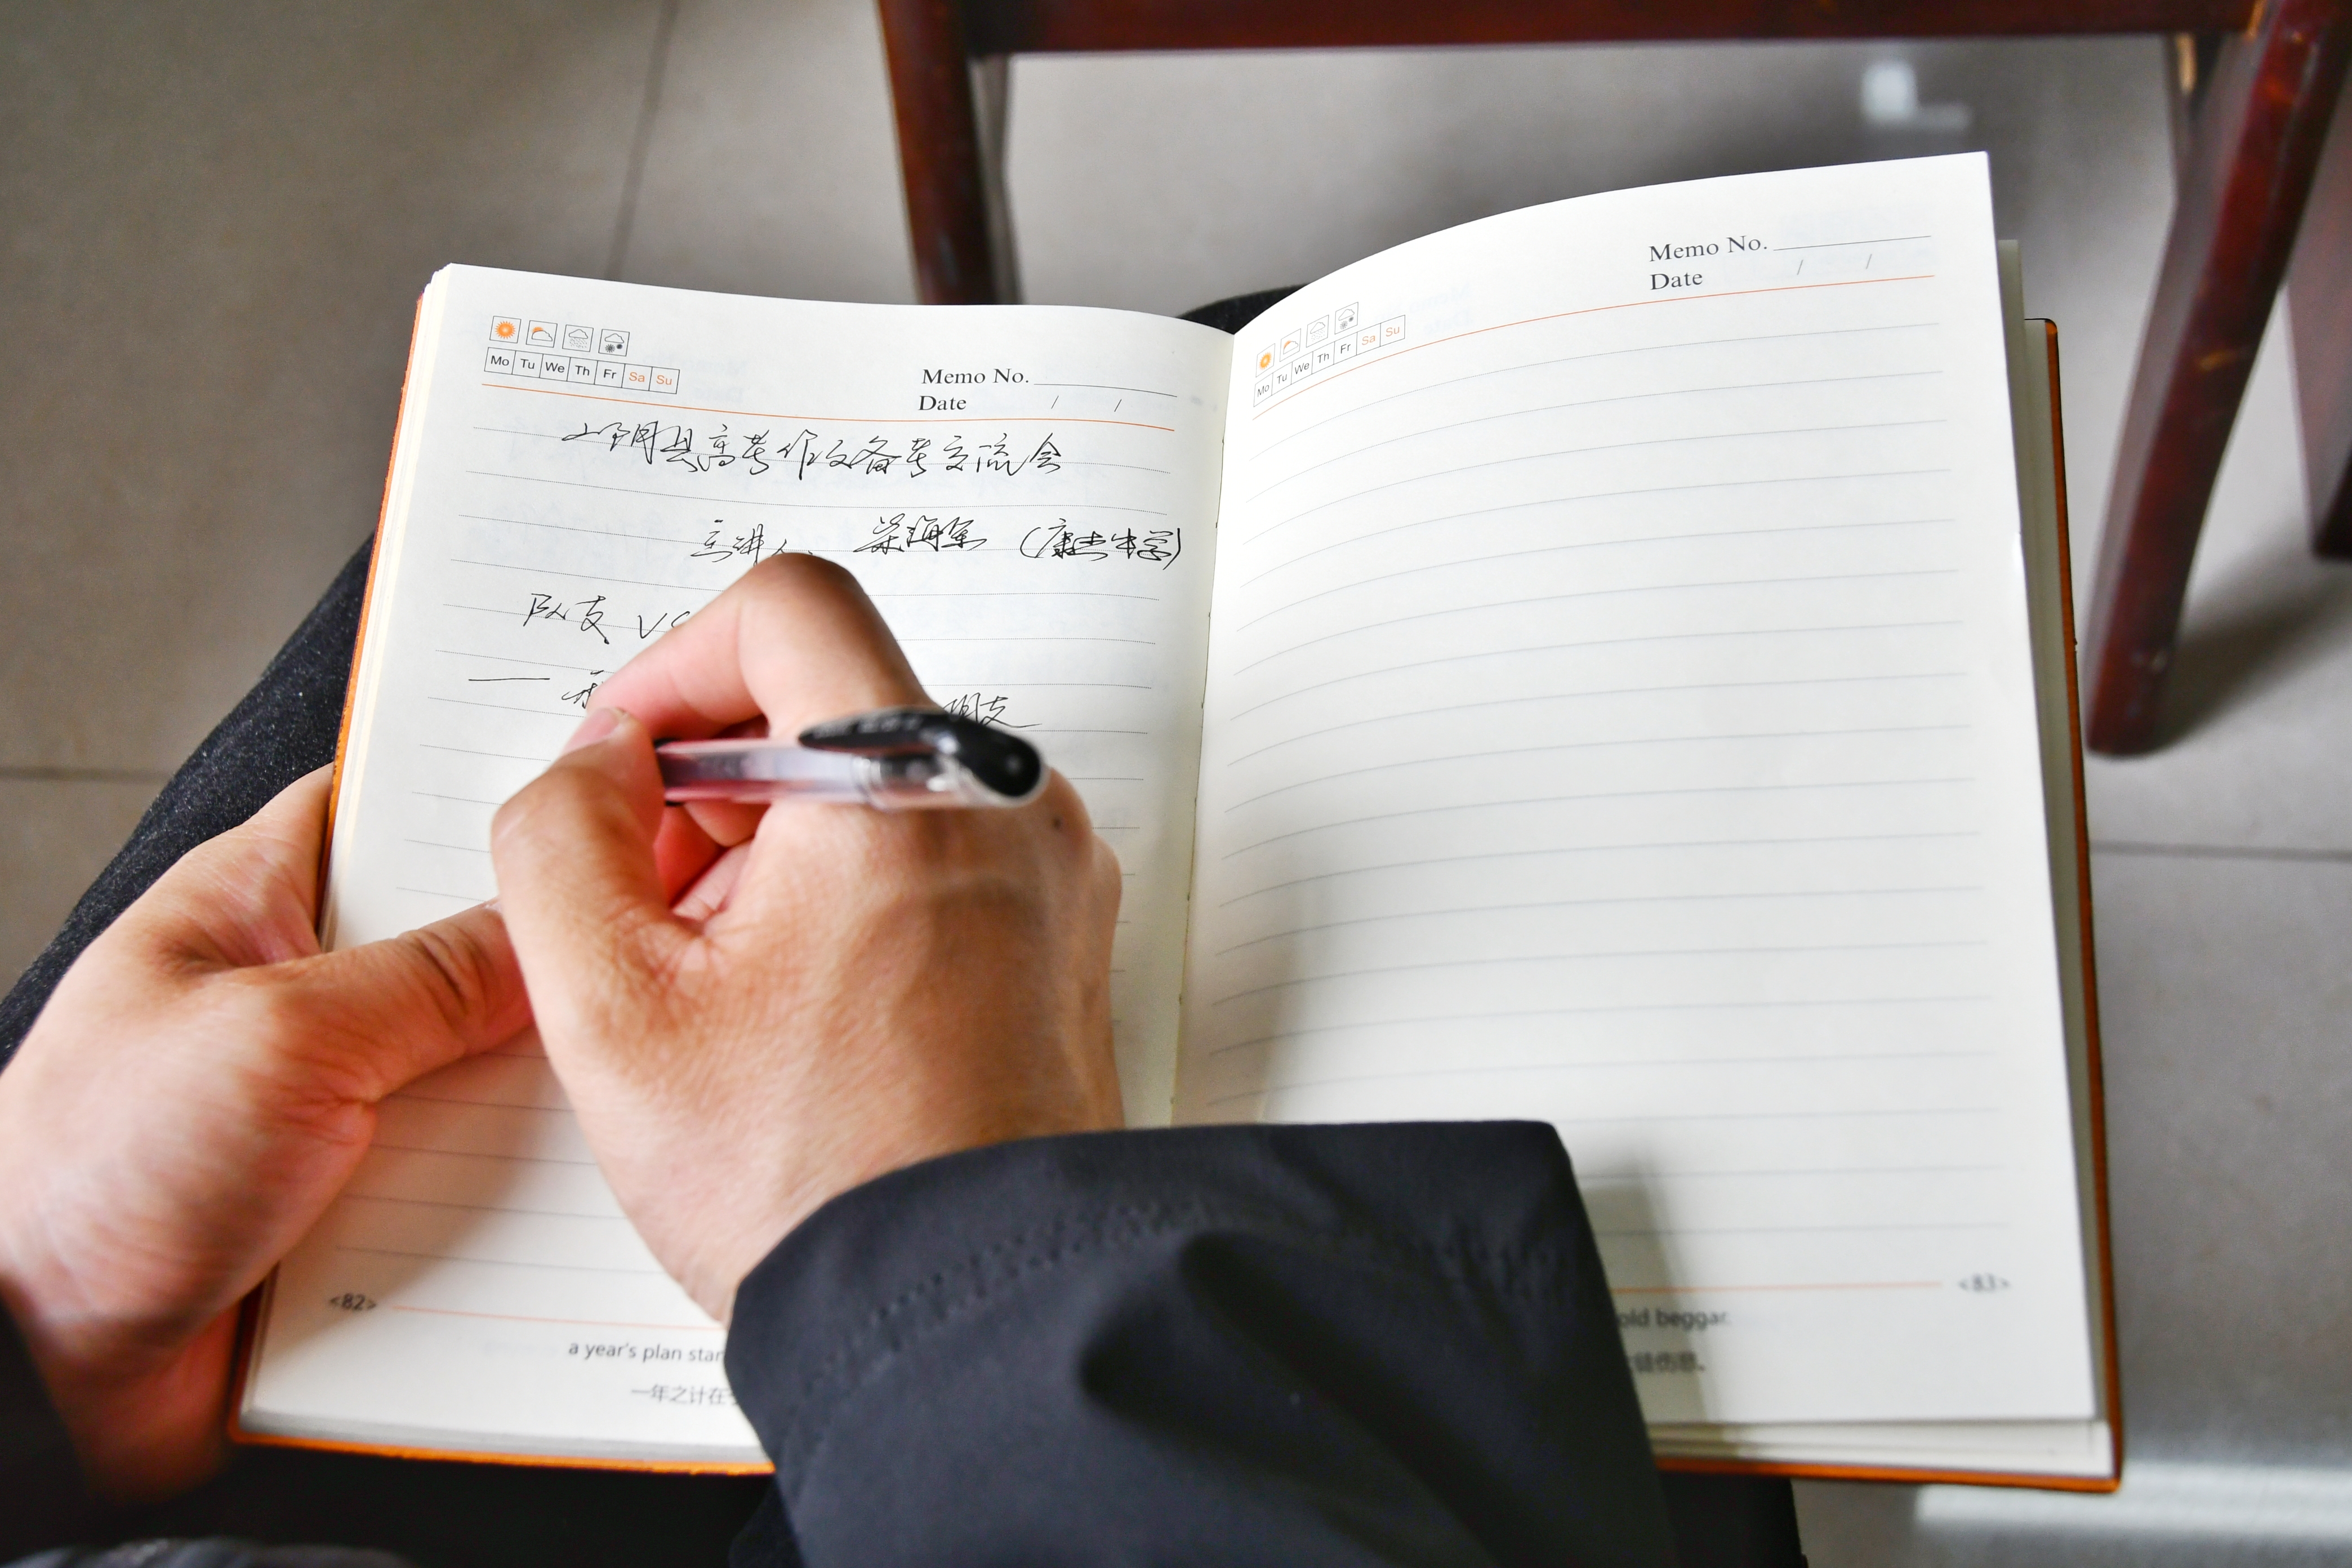 Mo Tu We Th Fr Sa Su
Memo No.
Date / /
高考作文备考交流会
主讲人 梁海军 (康杰中学)
VS
——
<82>
a year's plan star
一年之计在
Mo Tu We Th Fr Sa Su
Memo No.
Date / /
<83>
old beggar.
徒伤悲。